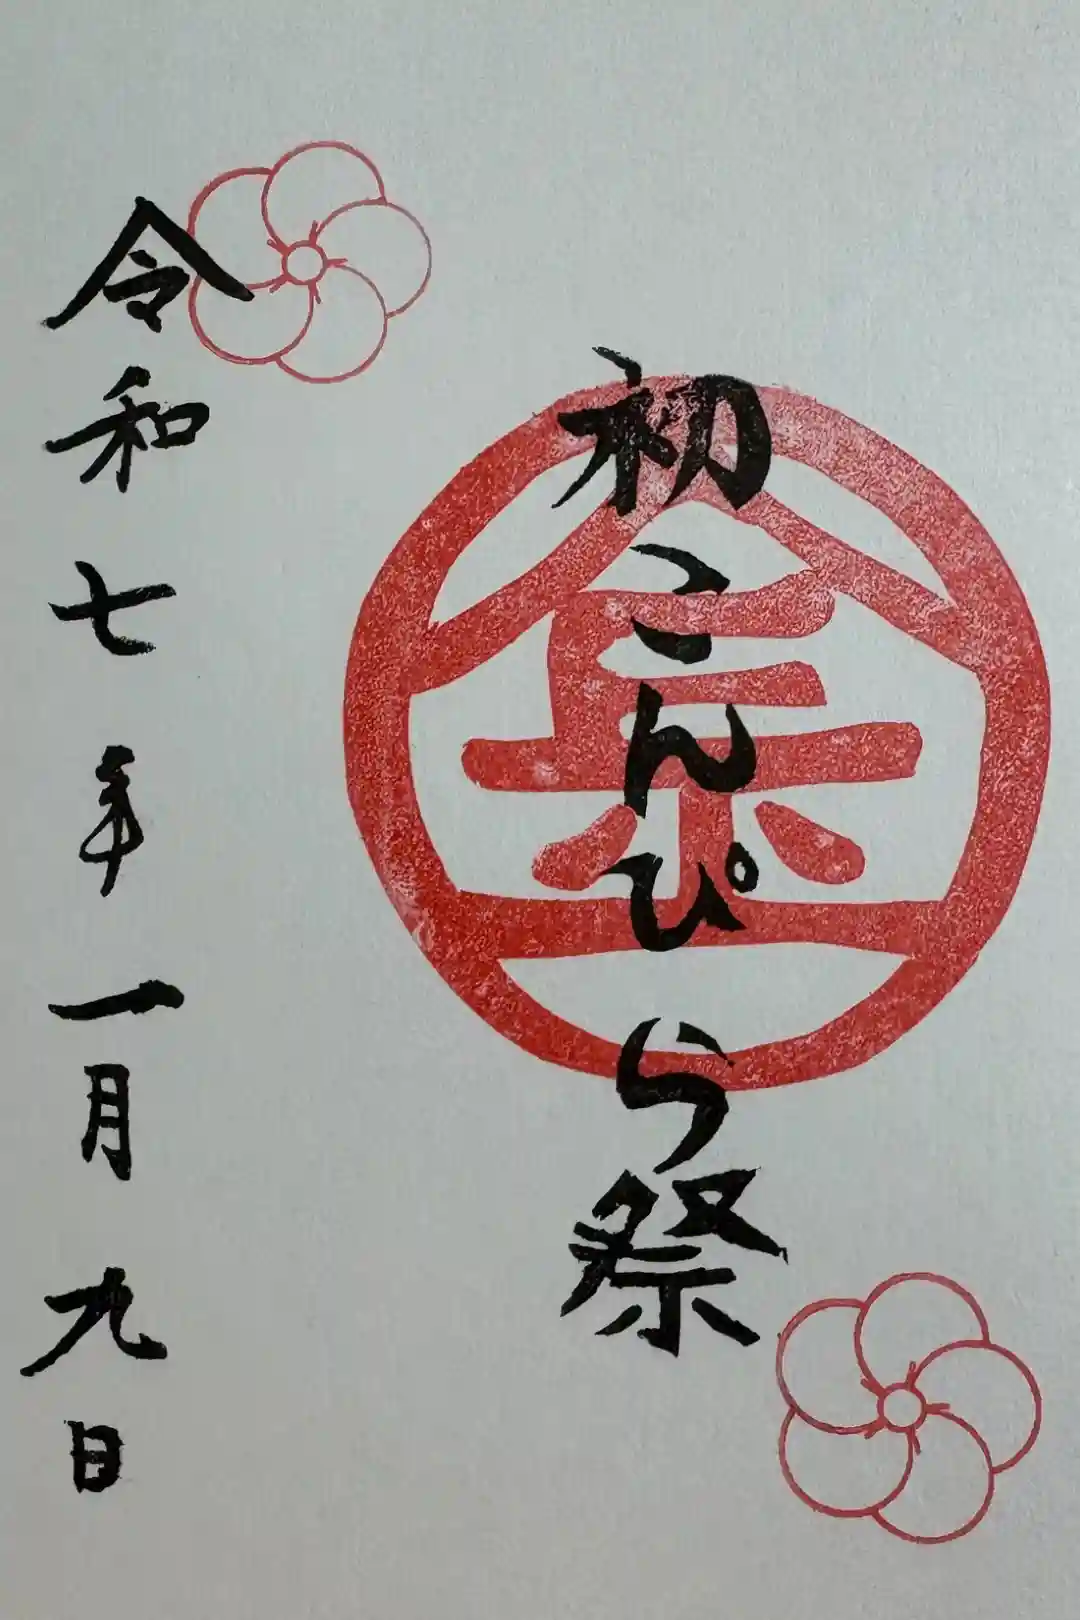 初こんぴら祭
金
令和七年一月九日